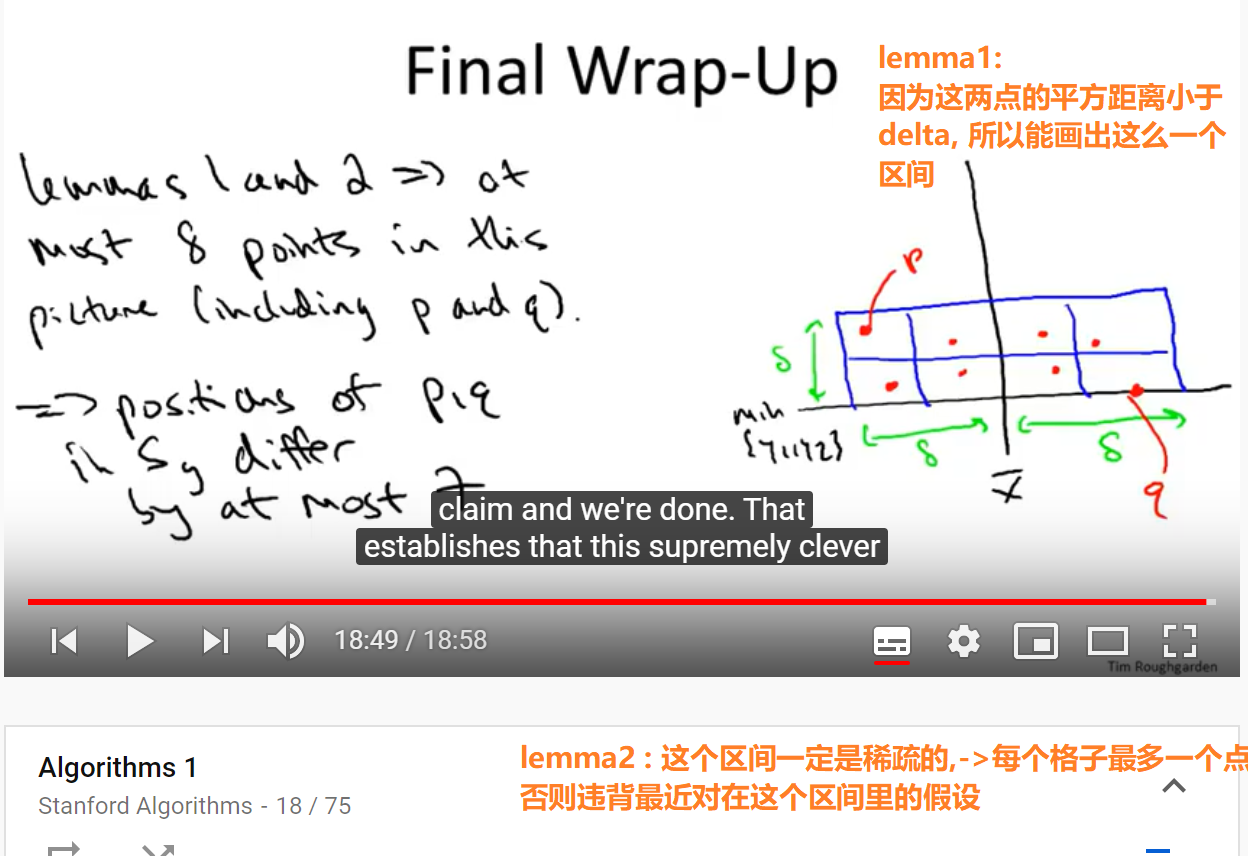 Final Wrap-Up
lemma1:
因为这两点的平方距离小于
delta, 所以能画出这么一个
区间
lemmas 1 and 2 => at
most 8 points in this
picture (including p and q).
=> positions of p,q
in Sy differ
by at most 7
p
δ
min
{y1,y2}
δ
δ
x̄
q
claim and we're done. That
establishes that this supremely clever
18:49 / 18:58
Tim Roughgarden
Algorithms 1
Stanford Algorithms - 18 / 75
lemma2 : 这个区间一定是稀疏的,->每个格子最多一个点
否则违背最近对在这个区间里的假设